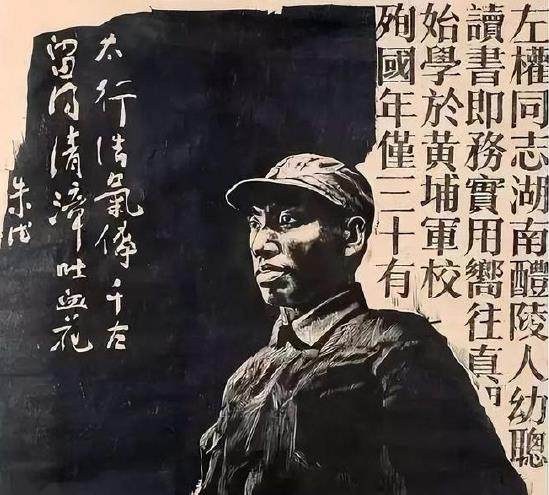 左權同志湖南醴陵人幼聰
讀書即務實用嚮往真
始學於黃埔軍校
殉國年僅三十有
太行浩氣傳千古
留得清漳吐血花
朱德